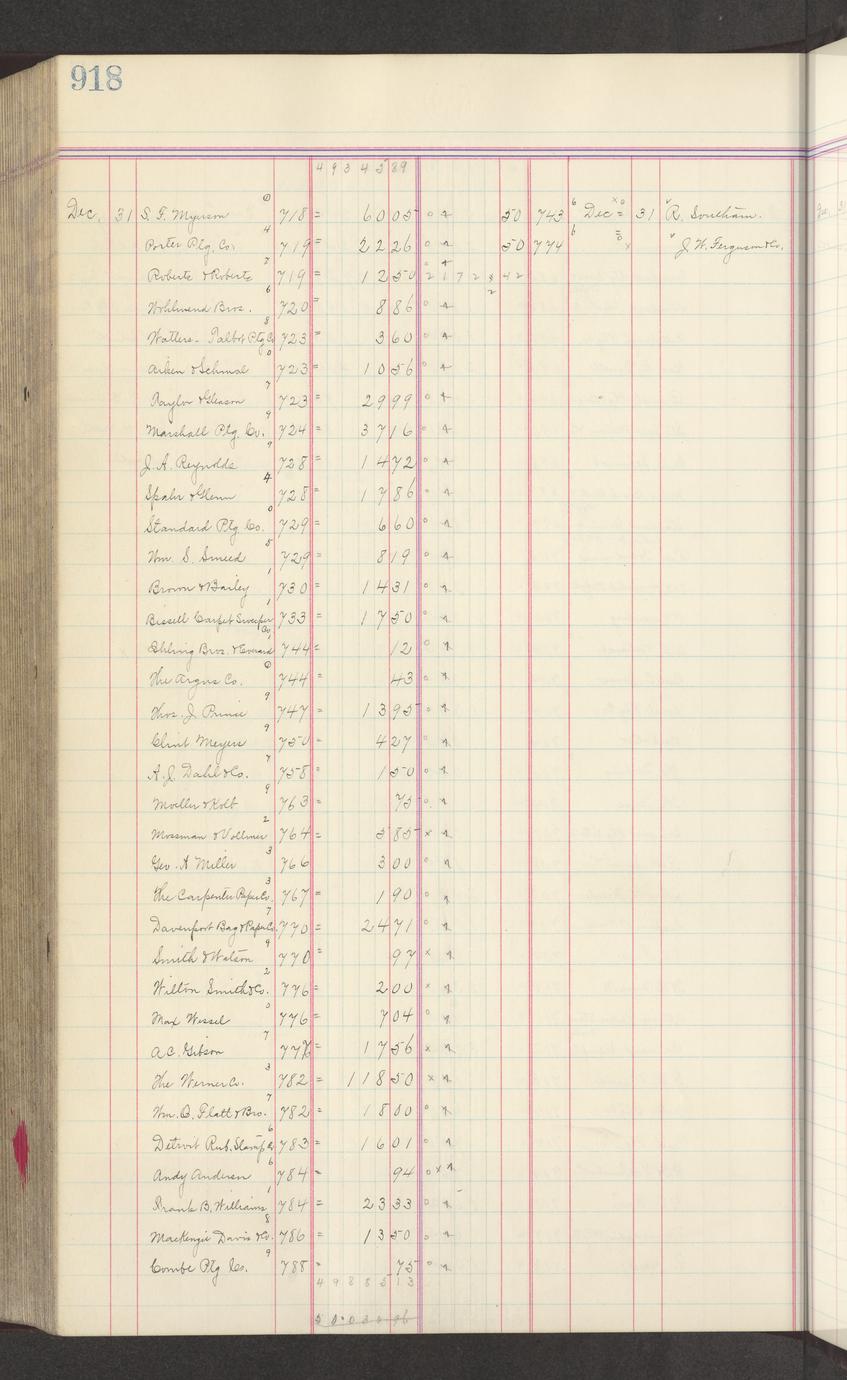 918
4 9 3 4 5 89
Dec. 31 S. F. Myerson 718 = 60 05 50 743 Dec = 31 R. Southam.
Porter Ptg. Co. 719 = 22 26 50 774 J. W. Ferguson & Co.
Roberts & Roberts 719 = 12 50 2 1 7 2 42
Wohlwend Bros. 720 = 8 86
Watters-Talbot Ptg Co 723 = 3 60
Aiken & Schmoe 723 = 10 56
Naylor & Gleason 723 = 29 99
Marshall Ptg. Co. 724 = 37 16
J. A. Reynolds 728 = 14 72
Spahr & Glenn 728 = 17 86
Standard Ptg Co. 729 = 6 60
Wm. S. Smeed 729 = 8 19
Brown & Bailey 730 = 14 31
Bissell Carpet Sweeper Co 733 = 17 50
Ihling Bros. & Everard 744 = 12
The Argus Co. 744 = 43
Thos. J. Prince 747 = 13 95
Clint Meyers 750 = 4 27
A. J. Dahl & Co. 758 1 50
Moeller & Kolb 763 = 75
Mossman & Vollmer 764 = 3 85 x
Geo. A Miller 766 3 00
The Carpenter Paper Co. 767 = 1 90
Davenport Bag & Paper Co. 770 = 24 71
Smith & Watson 770 = 97 x
Wilton Smith & Co. 776 = 2 00 x
Max Wessel 776 = 7 04
A C. Gibson 777 = 17 56 x
The Werner Co. 782 = 118 50 x
Wm. C. Flatt & Bro. 782 = 18 00
Detroit Rub. Stamp Co 783 = 16 01
Andy Anderson 784 = 94 x
Frank B. Williams 784 = 23 33
Mackenzie Davis & Co. 786 = 13 50
Combe Ptg Co. 788 75
4 9 8 8 5 13